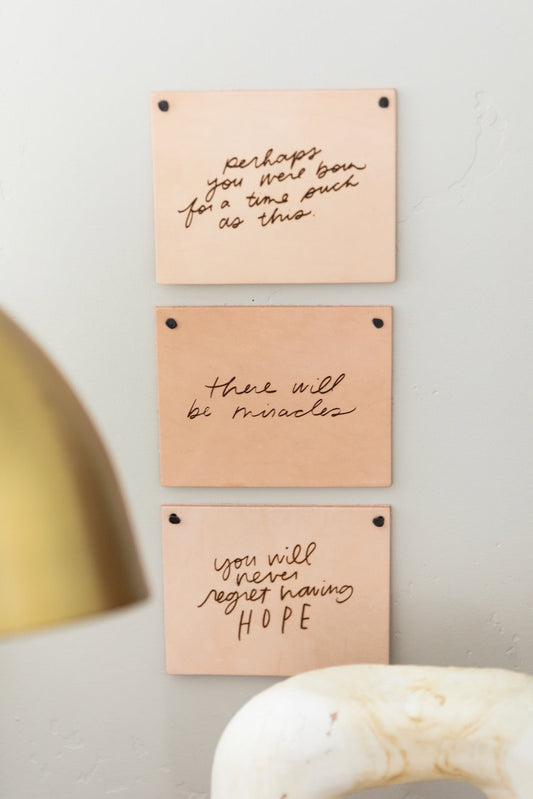 perhaps
you were born
for a time such
as this.
there will
be miracles
you will
never
regret having
HOPE